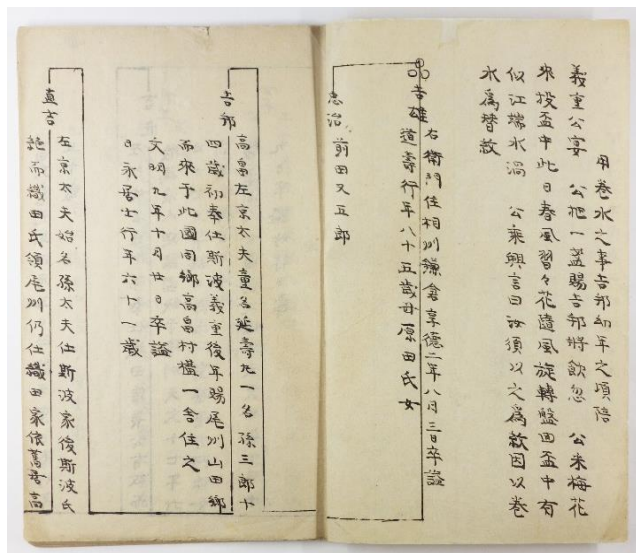 用巻水之事吉郎幼年之頃陪
義重公宴 公把一盃賜吉郎将飲忽 公米梅花
来投盃中此日春風習々花随風旋轉盤回盃中有
似江端水渦 公乗興言曰汝須以之為紋因以巻
水為替紋
吉雄 右衛門住相州鎌倉享徳二年八月三日卒諡
道壽行年八十五歳母原田氏女
忠治 前田又五郎
吉郎
高畠左京太夫童名延壽丸一名孫三郎十
四歳初奉仕斯波義重後年賜尾州山田郷
而来于此國同郷高畠村檻一舎住之
文明九年十月廿日卒諡
日永居士行年六十一歳
直吉
左京太夫始名孫太夫仕斯波家後斯波氏
絶而織田氏領尾州仍仕織田家依舊居高